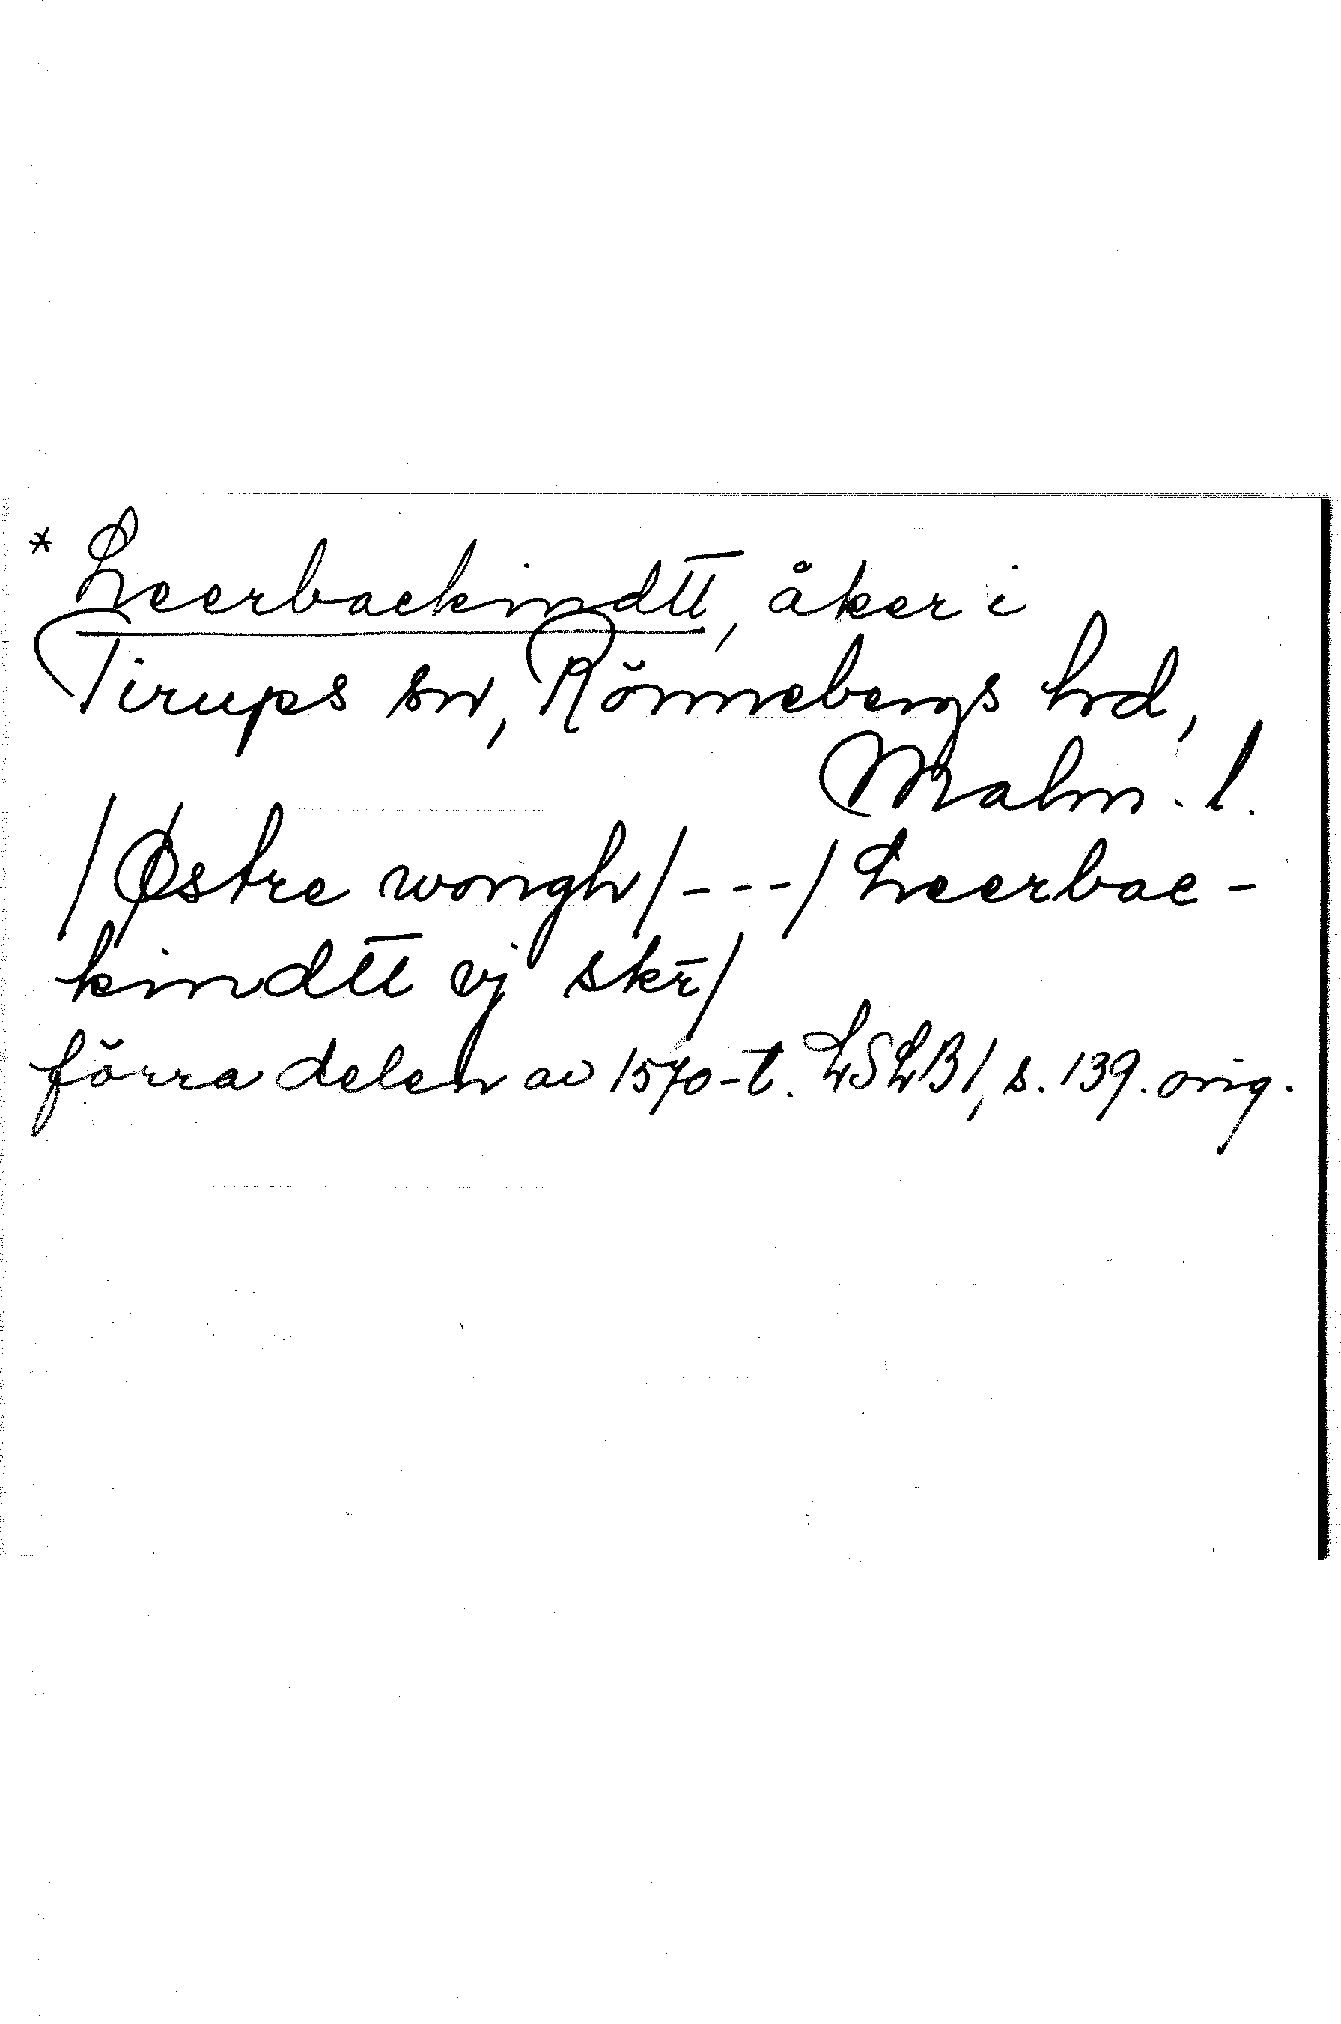 * Leerbackindtt̅, åker i
Tirups sn, Rönnebergs hd,
Malm. l.
/Østre wongh/---/Leerbac-
kindtt̅ vj skr̅/
förra delen av 1570-t. LSLB1, s. 139. orig.